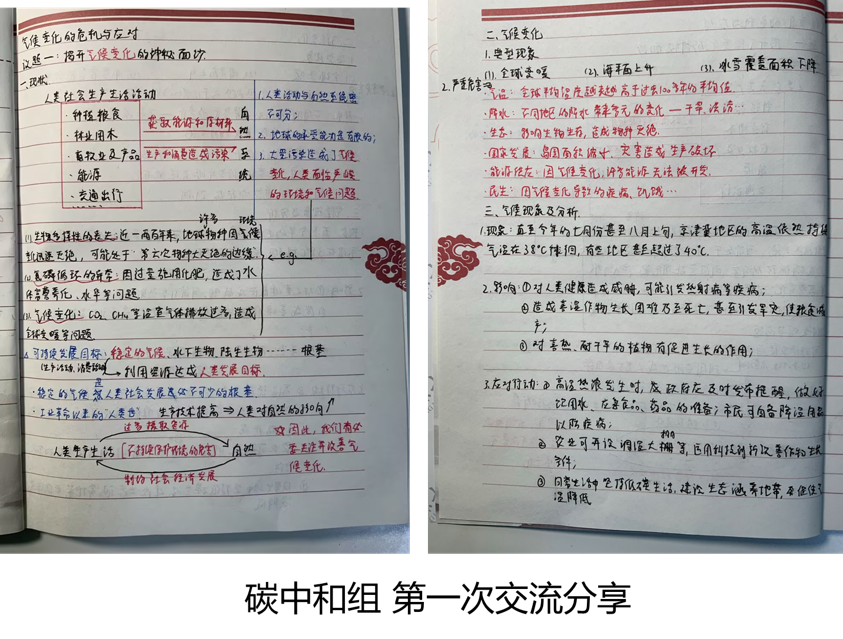 气候变化的危机与应对
议题一：揭开气候变化的神秘面纱
一、现状
人类社会生产生活活动
· 种植粮食
· 林业用木
· 畜牧业及产品
· 能源
· 交通出行
获取能源和原材料
生产和消费造成污染
自然系统
1. 人类活动与自然系统密不可分；
2. 地球的承受能力是有限的；
3. 大量污染造成了气候变化，人类面临严峻的环境和气候问题.
(1). 生物多样性的丧失：近一两百年来，地球许多物种因气候环境
机迅速灭绝，可能处于“第六次物种大灭绝的边缘”
e.g.
(2). 氮磷循环的紊乱：因过量施用化肥，造成了水
体富营养化、水华等问题
(3). 气候变化：CO₂、CH₄等温室气体排放过多，造成
全球变暖等问题
4. 可持续发展目标：稳定的气候、水下生物、陆生生物……根基
利用资源达成人类发展目标.
· 稳定的气候是人类社会发展必不可少的根基.
· 工业革命以来的“人类世” 生产技术提高 ⇒ 人类对自然的影响↑
过多摄取资源
人类生产生活 [不持续保护环境的危害] 自然
制约社会经济发展
☆因此，我们有必要去改善气候变化.
二、气候变化
1. 典型现象
(1). 全球变暖 (2). 海平面上升 (3). 冰雪覆盖面积下降
2. 严重危害
· 气温：全球平均温度越来越高于过去100多年的平均值
· 降水：不同地区的降水带来多元的变化 — 干旱、洪涝…
· 生态：影响生物生存，造成物种灭绝.
· 国家发展：岛国面积减少、灾害造成生产破坏
· 能源供应：因气候变化，许多能源无法被开发.
· 民生：因气候变化导致的疾病、饥饿…
三、气候现象及分析
1. 现象：直至今年的七月份甚至八月上旬，京津冀地区的高温依然持续
气温在38℃徘徊，有些地区甚至超过了40℃.
2. 影响：① 对人类健康造成威胁，可能引发热射病等疾病；
② 造成喜温作物生长困难乃至死亡，甚至引发旱灾，使粮食减
产；
③ 对喜热、耐干旱的植物有促进生长的作用；
3. 应对行动：① 高温热浪发生时，政府应及时发布提醒，做好
饮用水、应急食品、药品的准备；市民可自备降温用品
以防疾病；
② 农业可开设调温大棚等，运用科技进行改善作物生长
条件；
③ 日常生活中坚持低碳生活，建设生态涵养地带，
温降低
碳中和组 第一次交流分享